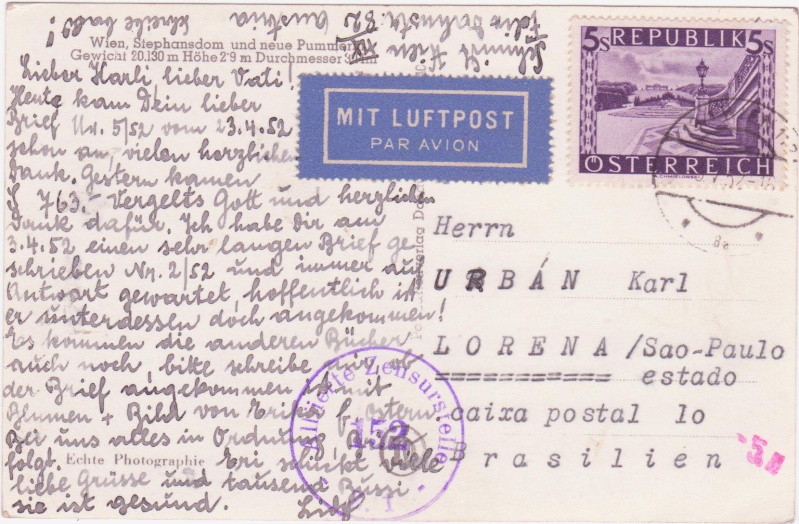 schreibe bald!
Wien, Stephansdom und neue Pummerin
Gewicht 20.130 m Höhe 2·9 m Durchmesser
Lieber Karli, lieber Vati!
Heute kam Dein lieber
Brief Nr. 5/52 vom 23.4.52
schon an, vielen herzlichen
Dank. Gestern kamen
S 763.- Vergelts Gott und herzlichen
Dank dafür. Ich habe Dir am
3.4.52 einen sehr langen Brief ge
schrieben Nr. 2/52 und immer auf
Antwort gewartet, hoffentlich ist
er unterdessen doch angekommen!
Es kommen die anderen Bücher
auch noch, bitte schreibe mir ob
der Brief angekommen ist mit
Blumen + Bild von Erika f. Ostern
Bei uns alles in Ordnung,
folgt. Eri schickt viele
liebe Grüsse und tausend Bussi
sie ist gesund.
Echte Photographie
Schmidt Wien
Austria
MIT LUFTPOST
PAR AVION
5S REPUBLIK 5S
ÖSTERREICH
Herrn
URBÁN Karl
LORENA/Sao-Paulo
estado
caixa postal lo
Brasilien
Alliierte Zensurstelle
152